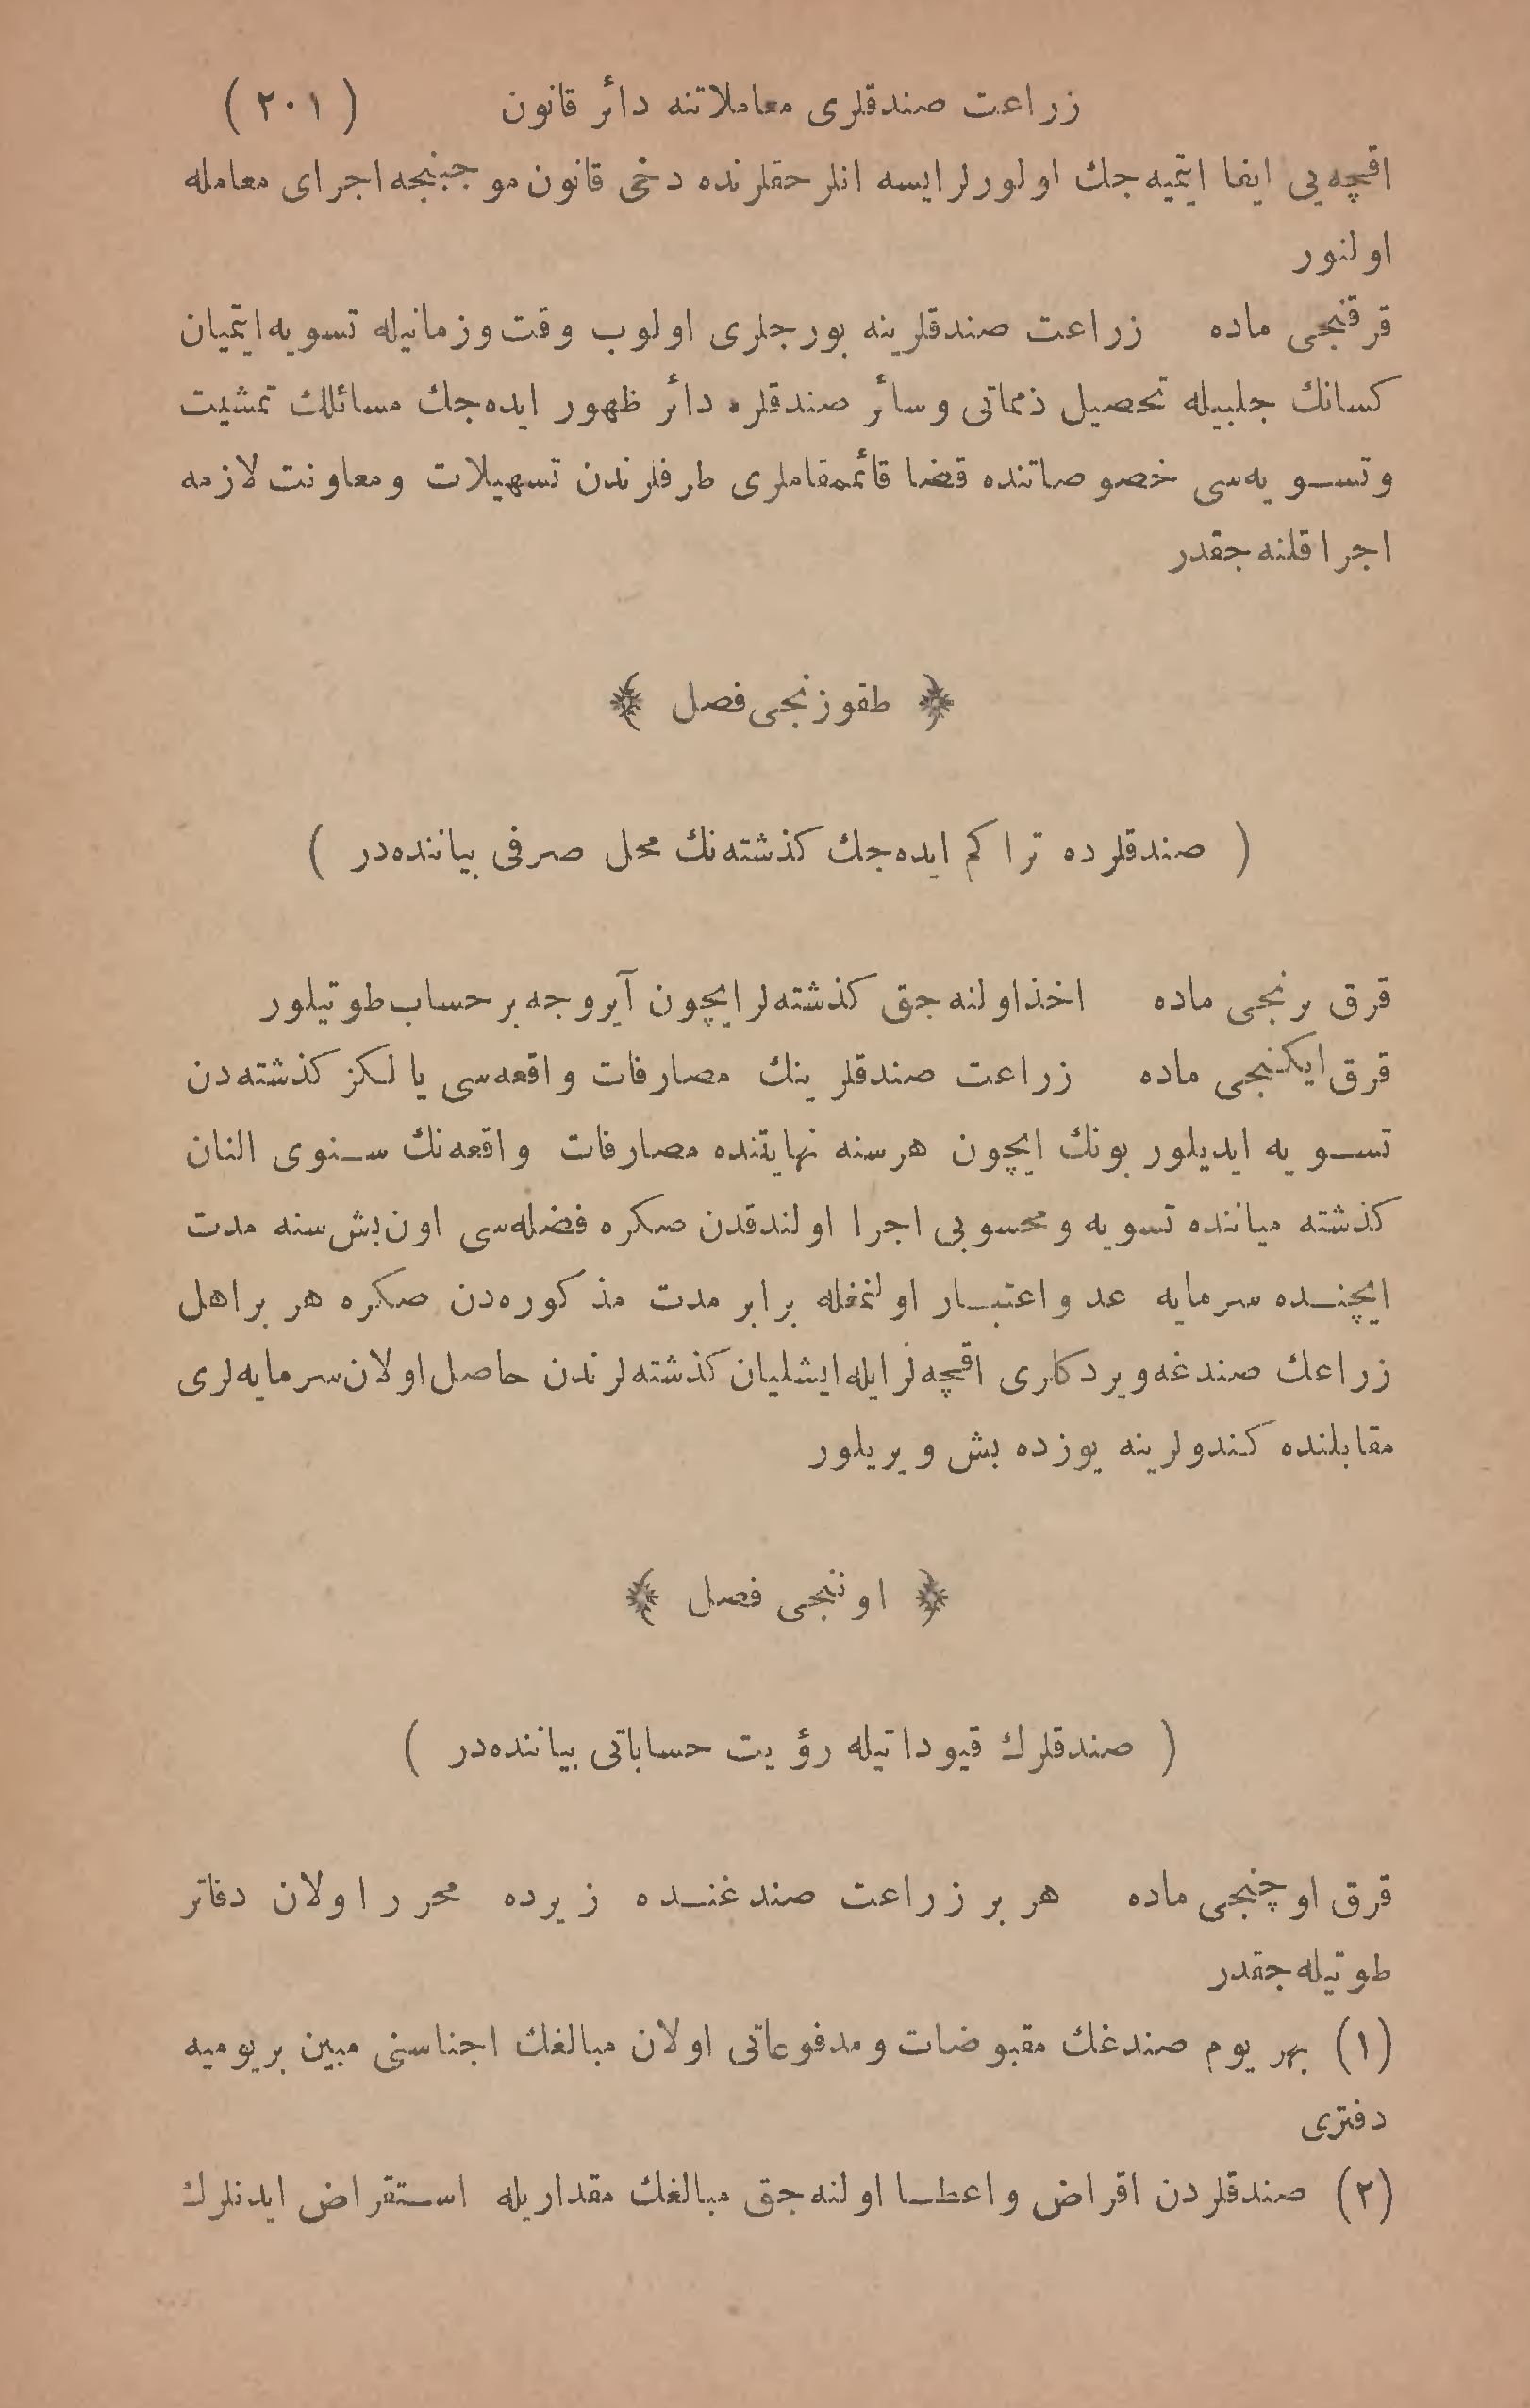 زراعت صندقلری معاملاتنه دائر قانون (٢٠١)
اقچه‌یی ایفا ایتمیه‌جك اولورلر ایسه انلر حقلرنده دخی قانون موجبنجه اجرای معامله
اولنور
قرقنجی ماده زراعت صندقلرینه بورجلری اولوب وقت وزمانیله تسویه ایتمیان
كسانك جلبیله تحصیل ذمماتی وسائر صندقلره دائر ظهور ایده‌جك مسائلك تمشیت
وتسـویه‌سی خصوصاتنده قضا قائممقاملری طرفلرندن تسهیلات ومعاونت لازمه
اجرا قلنه‌جقدر
﴿ طقوزنجی فصل ﴾
( صندقلرده تراكم ایده‌جك كذشته‌نك محل صرفی بیاننده‌در )
قرق برنجی ماده اخذ اولنه‌جق كذشته‌لر ایچون آیروجه بر حساب طوتیلور
قرق ایكنجی ماده زراعت صندقلرینك مصارفات واقعه‌سی یالكز كذشته‌دن
تسـویه ایدیلور بونك ایچون هر سنه نهایتنده مصارفات واقعه‌نك سـنوی النان
كذشته میاننده تسویه ومحسوبی اجرا اولندقدن صكره فضله‌سی اون بش سنه مدت
ایچنـده سرمایه عد واعتبـار اولنمغله برابر مدت مذكوره‌دن صكره هر بر اهل
زراعك صندغه ویردكلری اقچه‌لر ایله ایشلیان كذشته‌لرندن حاصل اولان سرمایه‌لری
مقابلنده كندولرینه یوزده بش ویریلور
﴿ اوننجی فصل ﴾
( صندقلرك قیوداتیله رؤیت حساباتی بیاننده‌در )
قرق اوچنجی ماده هر بر زراعت صندغنـده زیرده محرر اولان دفاتر
طوتیله‌جقدر
(١) بهر یوم صندغك مقبوضات ومدفوعاتی اولان مبالغك اجناسنی مبین بر یومیه
دفتری
(٢) صندقلردن اقراض واعطـا اولنه‌جق مبالغك مقداریله اسـتقراض ایدنلرك